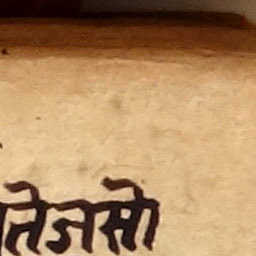 तेजसो